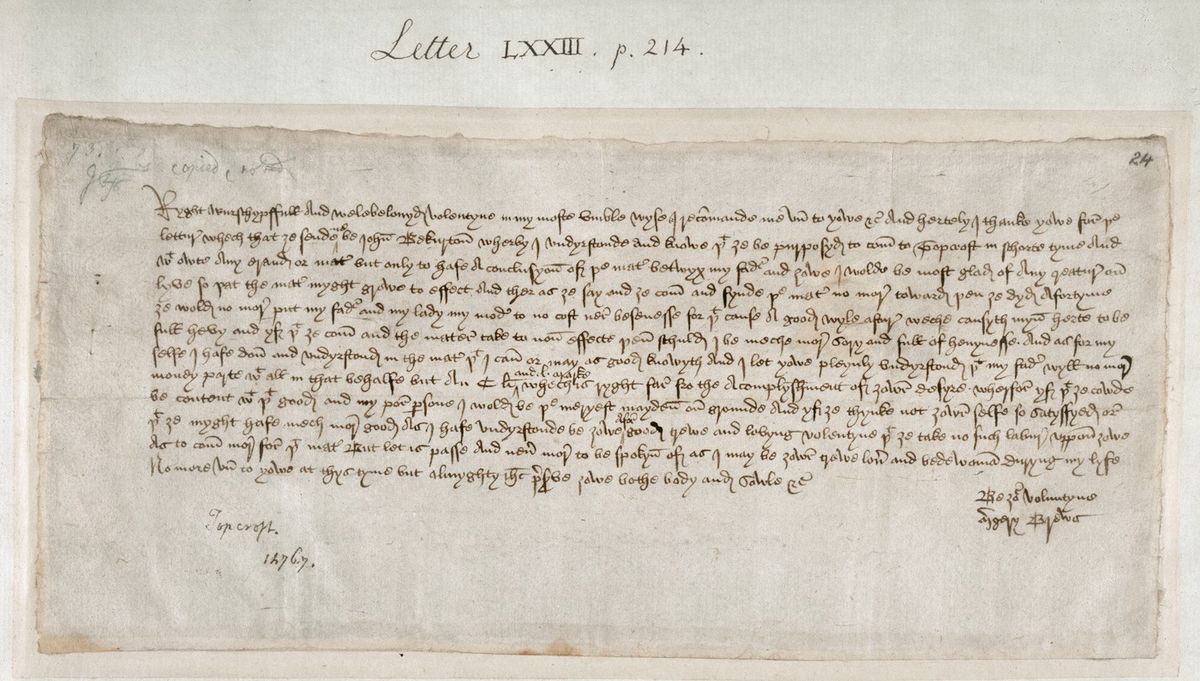 Letter LXXIII. p. 214.
24
73.
copied
Ryght wurschypffull and welebelovyd volentyne in my moste umble wyse I recomande me un to yowe &c And hertely I thanke yowe for þe
lettur whech that ze sende me be John Bekurton wherby I undyrstonde and knowe þt ze be purposyd to com to Topcroft in schorte tyme And
wt owte any erand or mater but only to hafe a conclusyon of þe mater betwyx my fadr and yowe I wolde be most glad of Any creatur on
lyve so þat the mater myght growe to effect And ther as ze say and ze com and fynde þe mater no mor toward þen ze dyd afortyme
ze wold no mor put my fadr and my lady my modr to no cost ner besenesse for þt cause A good wyle aftur weche causyth myn herte to be
full hevy and yf þt ze com and the mater take to non effecte þen schuld I be meche mor sory and full of hevynesse And as for my
selfe I hafe don and undyrstond in the mater þt I can or may as good knowyth And I let yowe pleynly undyrstond þt my fadr wyll no mor
money parte wt all in that behalfe but an C li and l marke whech is ryght far fro the acomplyshment of yowr desyre wherfor yf þt ze cowde
be content wt þt good and my por persone I wold be þe meryest mayden on grounde And yf ze thynke not yowr selfe so satysfyed or
þt ze myght hafe mech mor good as I hafe undyrstonde be yowe afor good trewe and lovyng volentyne þt ze take no such labur uppon yowe
As to com mor for þt mater But let is passe and never mor to be spokyn of as I may be yowr trewe lover and bedewoman duryng my lyfe
No more un to yowe at thys tyme but almyghty Jhc preserve yowe bothe body and sowle &c
Be yor voluntyne
Mergery Brews
Topcroft.
1476.7.